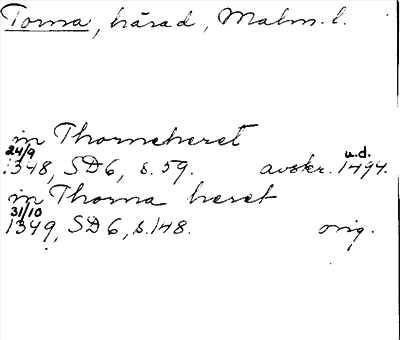 Torna, härad, Malm. l.
in Thorneheret
24/9
1348, SD6, s. 59. avskr. u.d. 1494.
in Thorna heret
31/10
1349, SD6, s. 148. orig.